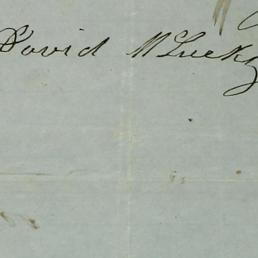 David McLucky